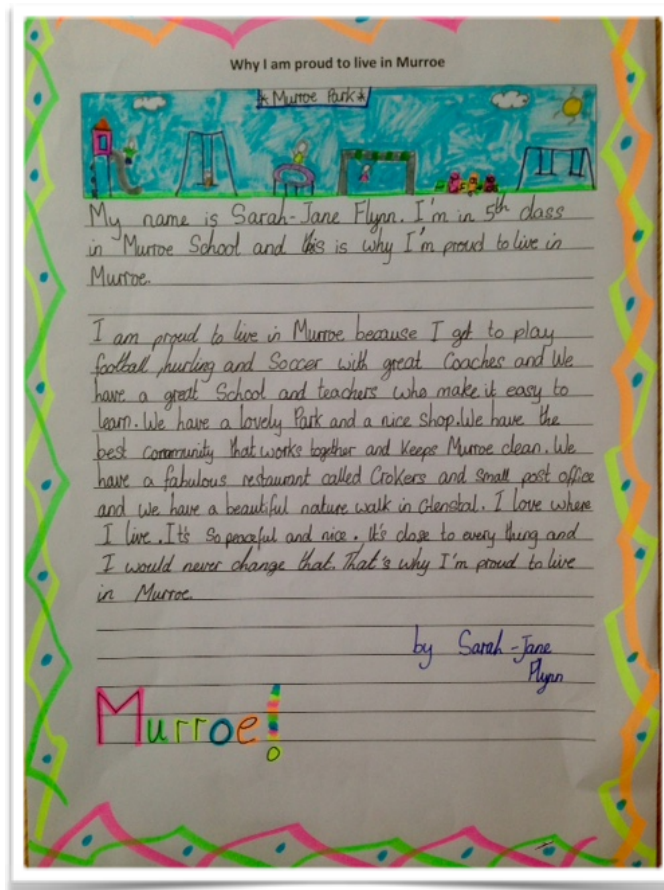 Why I am proud to live in Murroe
*Murroe Park*
My name is Sarah-Jane Flynn. I'm in 5th class
in Murroe School and this is why I'm proud to live in
Murroe.
I am proud to live in Murroe because I get to play
football, hurling and Soccer with great Coaches and We
have a great School and teachers who make it easy to
learn. We have a lovely Park and a nice shop. We have the
best community that works together and Keeps Murroe clean. We
have a fabulous restaurant called Crokers and small post office
and we have a beautiful nature walk in Glenstal. I love where
I live. It's so peaceful and nice. It's close to every thing and
I would never change that. That's why I'm proud to live
in Murroe.
by Sarah-Jane
Flynn
Murroe!